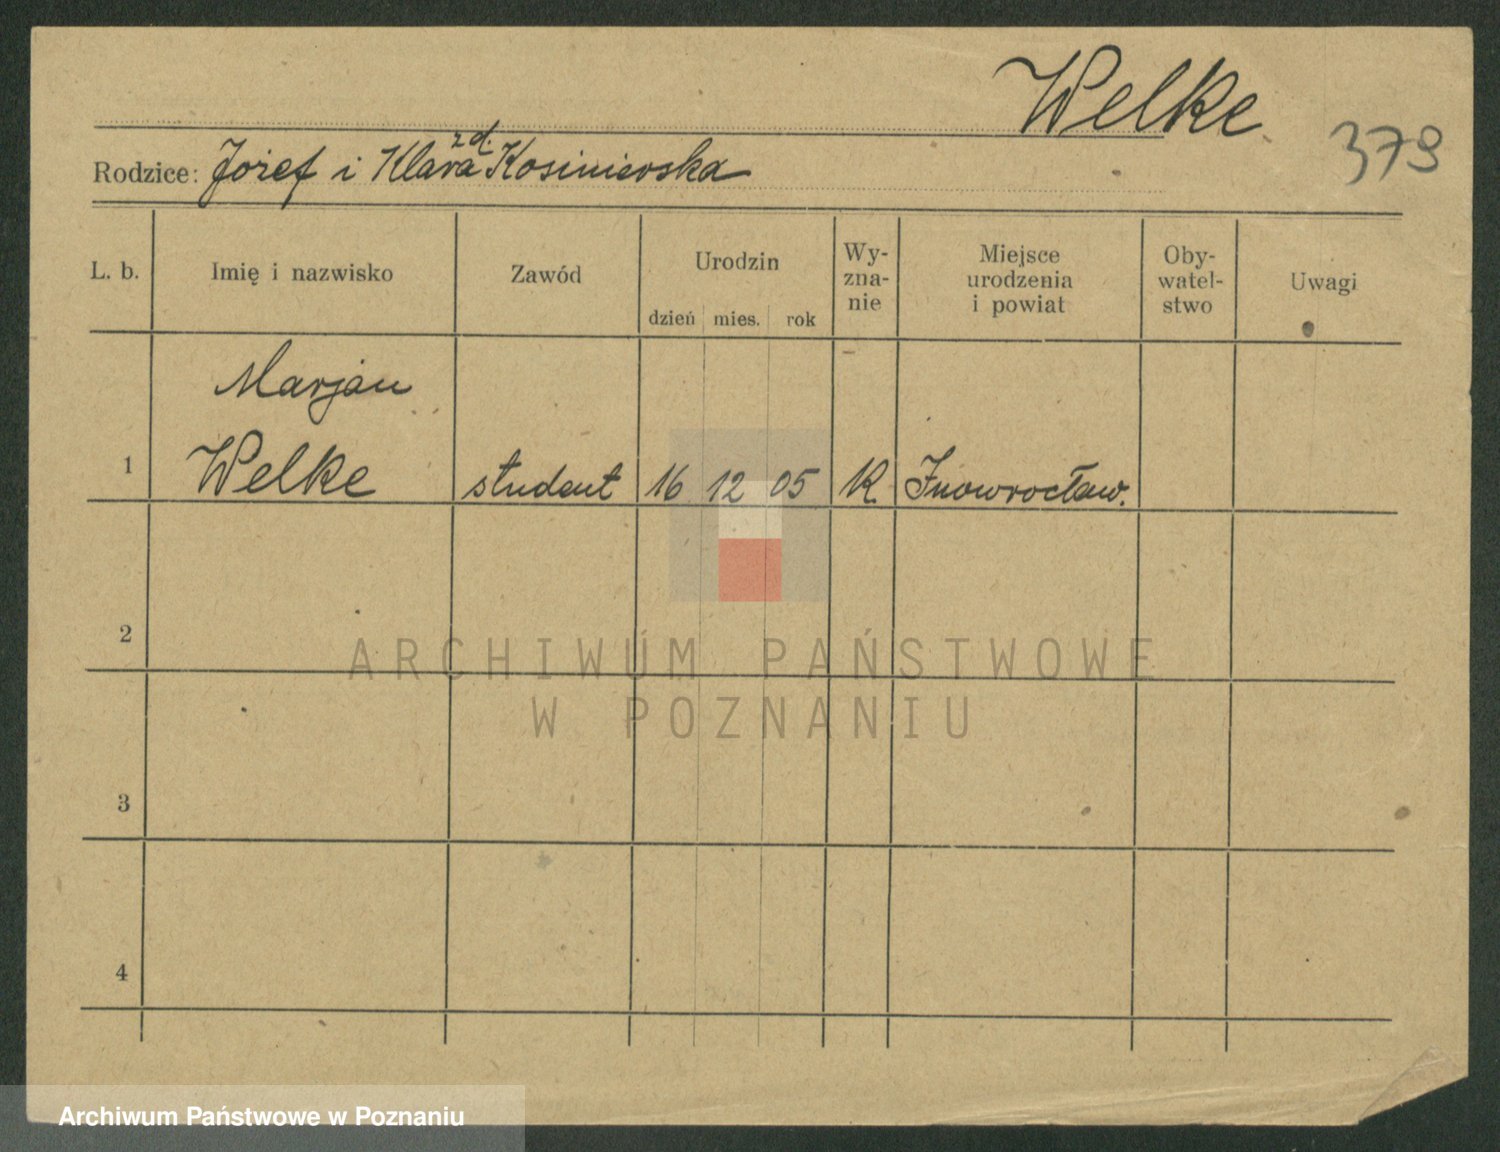 Welke
379
zd.
Rodzice: Józef i Klara Kosinierska
L. b. Imię i nazwisko Zawód Urodzin dzień mies. rok Wy-zna-nie Miejsce urodzenia i powiat Oby-watel-stwo Uwagi
Marjan
1 Welke student 16 12 05 K. Inowrocław.
2
ARCHIWUM PAŃSTWOWE
W POZNANIU
3
4
Archiwum Państwowe w Poznaniu